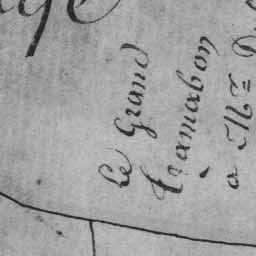 Le Grand
tramabon
a Mr D